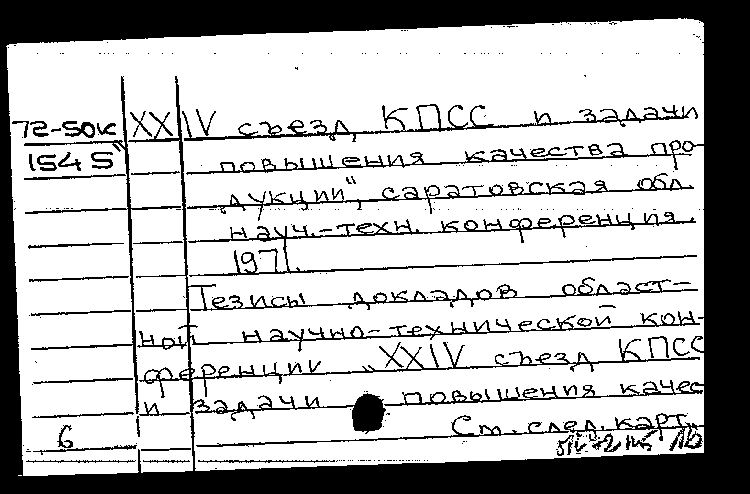 72-50к XXIV съезд КПСС и задачи
1545 повышения качества про-
дукции", саратовская обл.
науч.-техн. конференция.
1971.
Тезисы докладов област-
ной научно-технической кон-
ференции „XXIV съезд КПСС
и задачи повышения качес
6 См. след. карт.